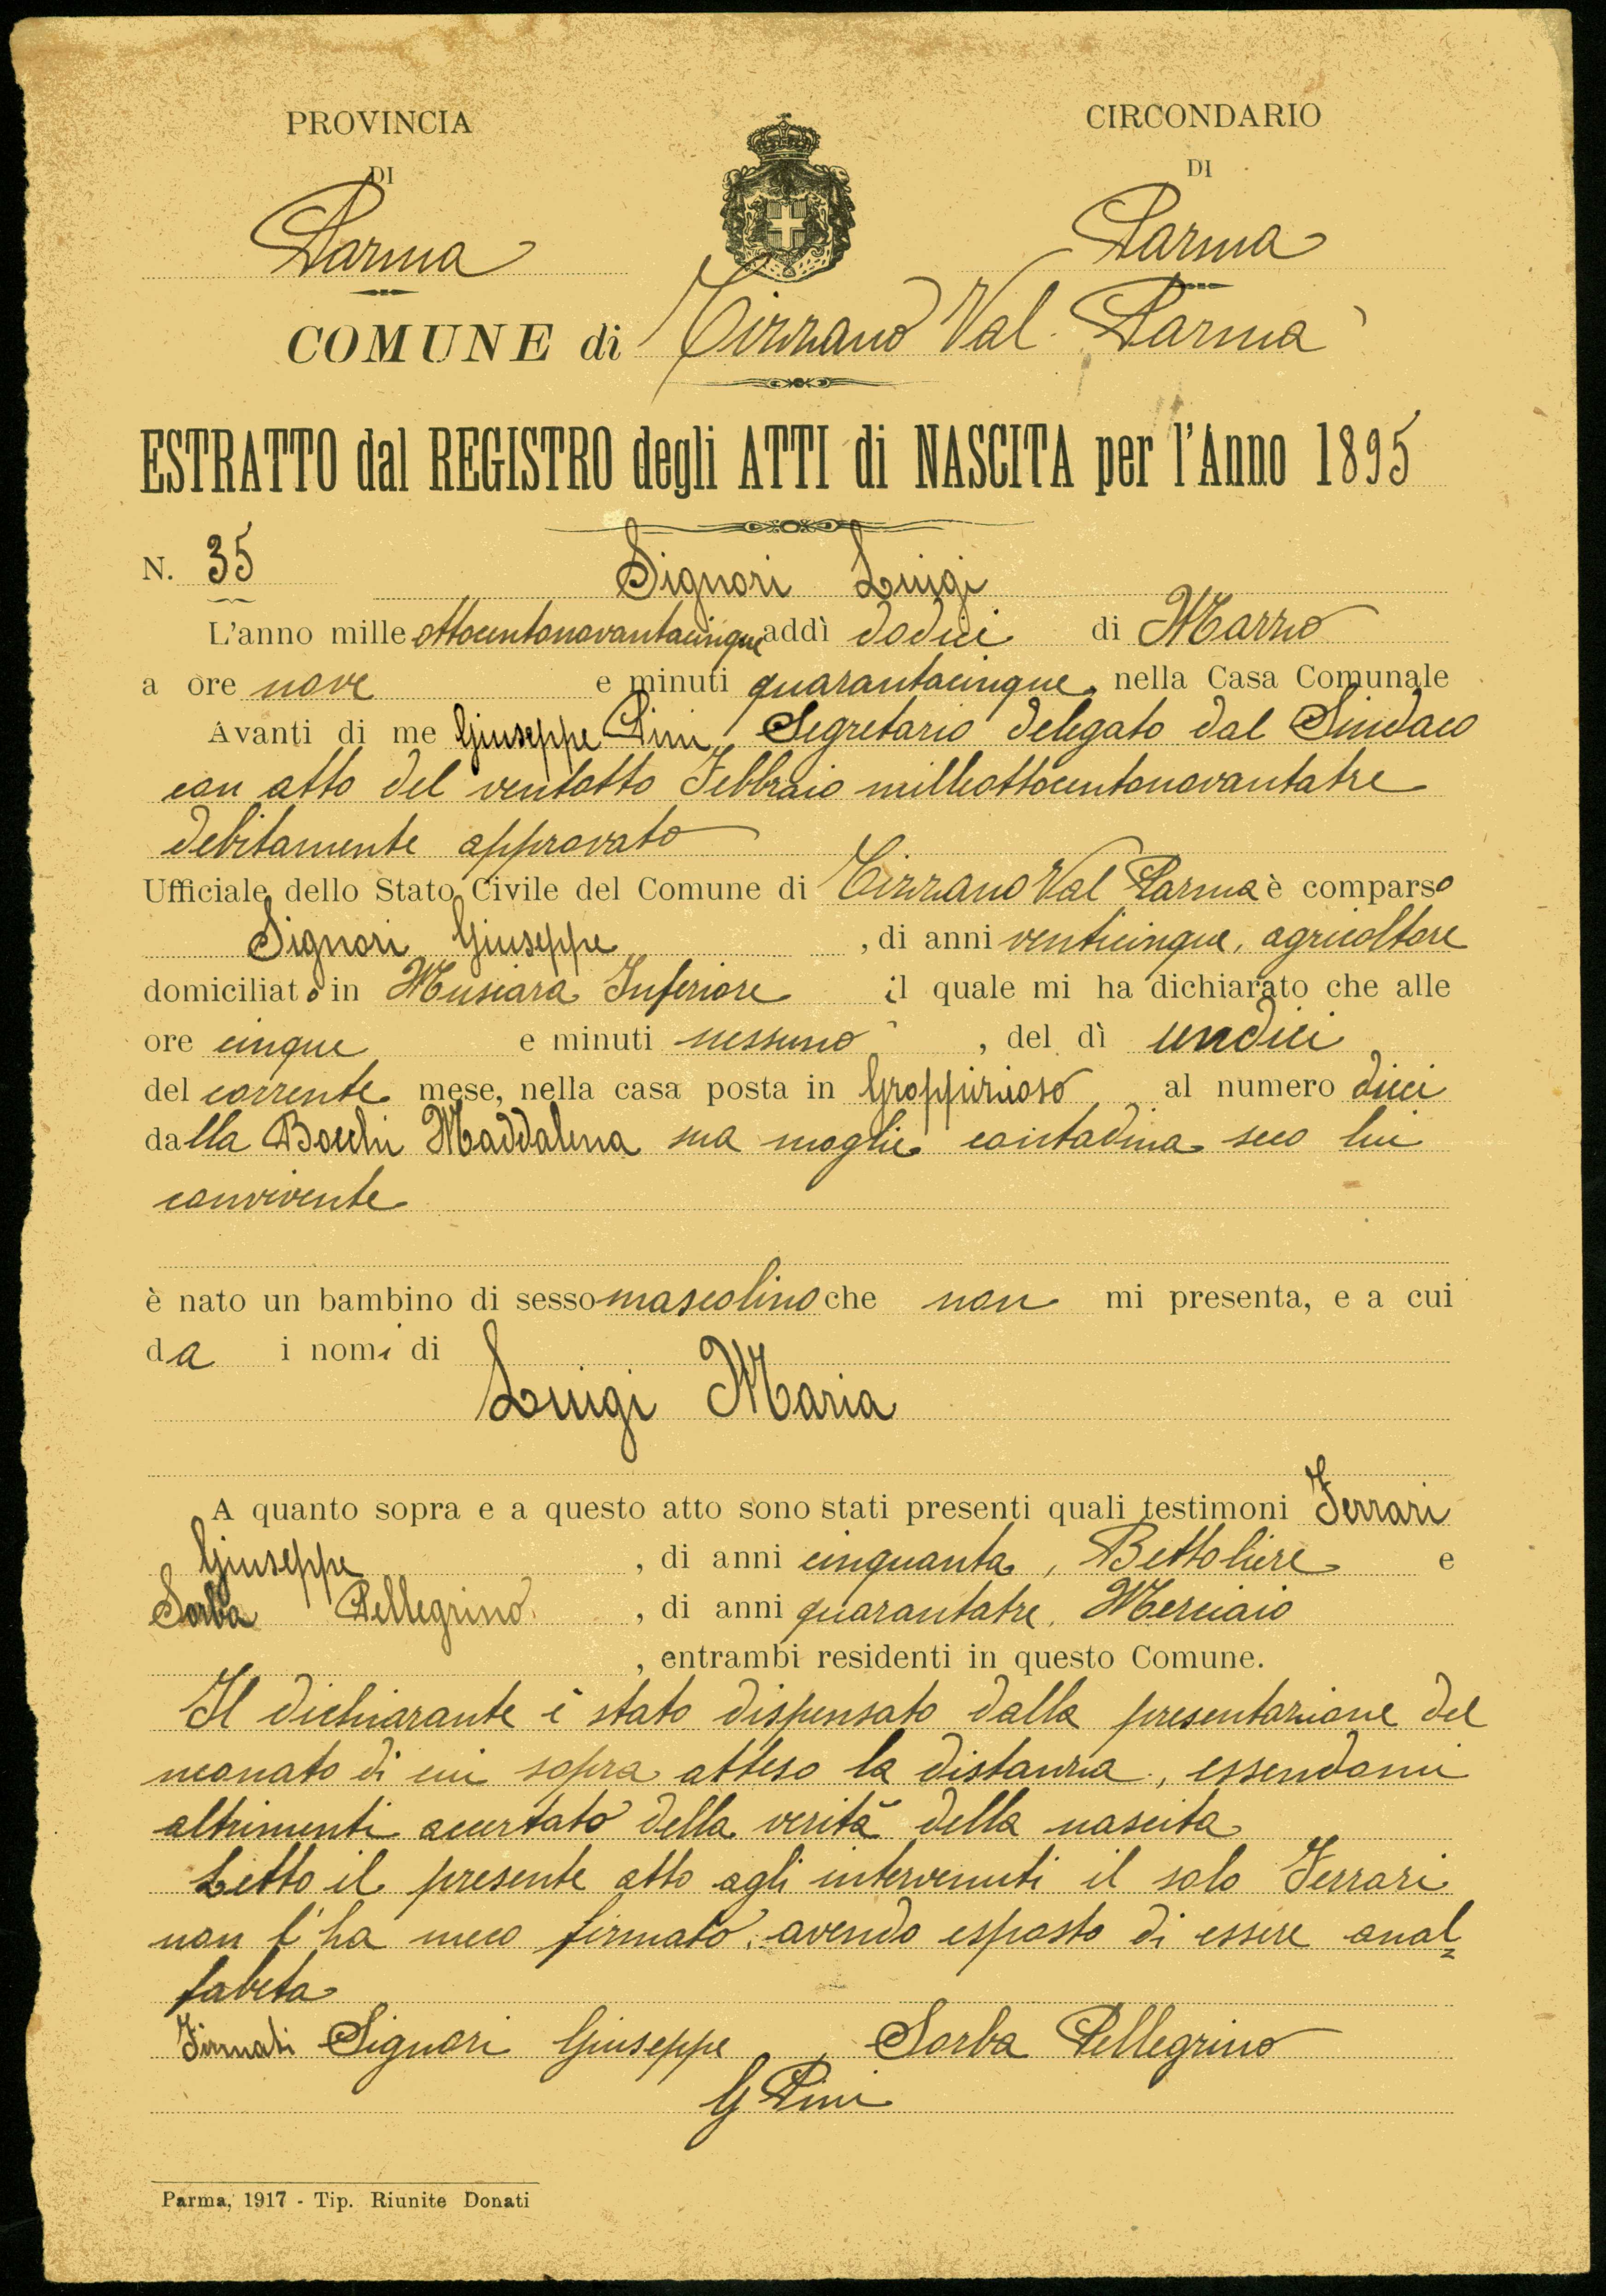 PROVINCIA
DI
Parma
CIRCONDARIO
DI
Parma
COMUNE di Tizzano Val Parma
ESTRATTO dal REGISTRO degli ATTI di NASCITA per l'Anno 1895
N. 35
Signori Luigi
L'anno mille ottocentonovantacinque addì dodici di Marzo
a ore nove e minuti quarantacinque, nella Casa Comunale
Avanti di me Giuseppe Pini, Segretario delegato dal Sindaco
con atto del ventotto Febbraio milleottocentonovantatre
debitamente approvato
Ufficiale dello Stato Civile del Comune di Tizzano Val Parma è comparso
Signori Giuseppe, di anni venticinque, agricoltore
domiciliato in Musiara Inferiore il quale mi ha dichiarato che alle
ore cinque e minuti nessuno, del dì undici
del corrente mese, nella casa posta in Groppizioso al numero dieci
dalla Bocchi Maddalena sua moglie contadina seco lui
convivente
è nato un bambino di sesso mascolino che non mi presenta, e a cui
da i nomi di
Luigi Maria
A quanto sopra e a questo atto sono stati presenti quali testimoni Ferrari
Giuseppe, di anni cinquanta, Bettoliere e
Sorba Pellegrino, di anni quarantatre, Merciaio
, entrambi residenti in questo Comune.
Il dichiarante è stato dispensato dalla presentazione del
neonato di cui sopra atteso la distanza, essendomi
altrimenti accertato della verità della nascita
Letto il presente atto agli intervenuti il solo Ferrari
non l'ha meco firmato, avendo esposto di essere anal=
fabeta
Firmati Signori Giuseppe, Sorba Pellegrino
G Pini
Parma, 1917 - Tip. Riunite Donati